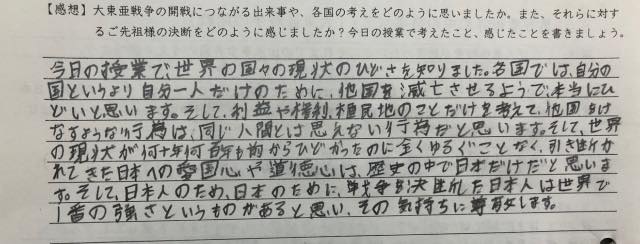 【感想】大東亜戦争の開戦につながる出来事や、各国の考えをどのように思いましたか。また、それらに対す
るご先祖様の決断をどのように感じましたか？今日の授業で考えたこと、感じたことを書きましょう。
今日の授業で、世界の国々の現状のひどさを知りました。各国では、自分の
国というより自分一人だけのために、他国を滅亡させるようで、本当にひ
どいと思います。そして、利益や権利、植民地のことだけを考えて、他国をけ
なすような行為は、同じ人間とは思えない行為だと思います。そして、世界
の現状が何十年何百年も前からひどかったのに全くゆるぐことなく、引き継が
れてきた日本への愛国心や道徳心は、歴史の中で日本だけだと思いま
す。そして、日本人のため、日本のために、戦争を決断した日本人は世界で
1番の強さというものがあると思い、その気持ちに尊敬します。